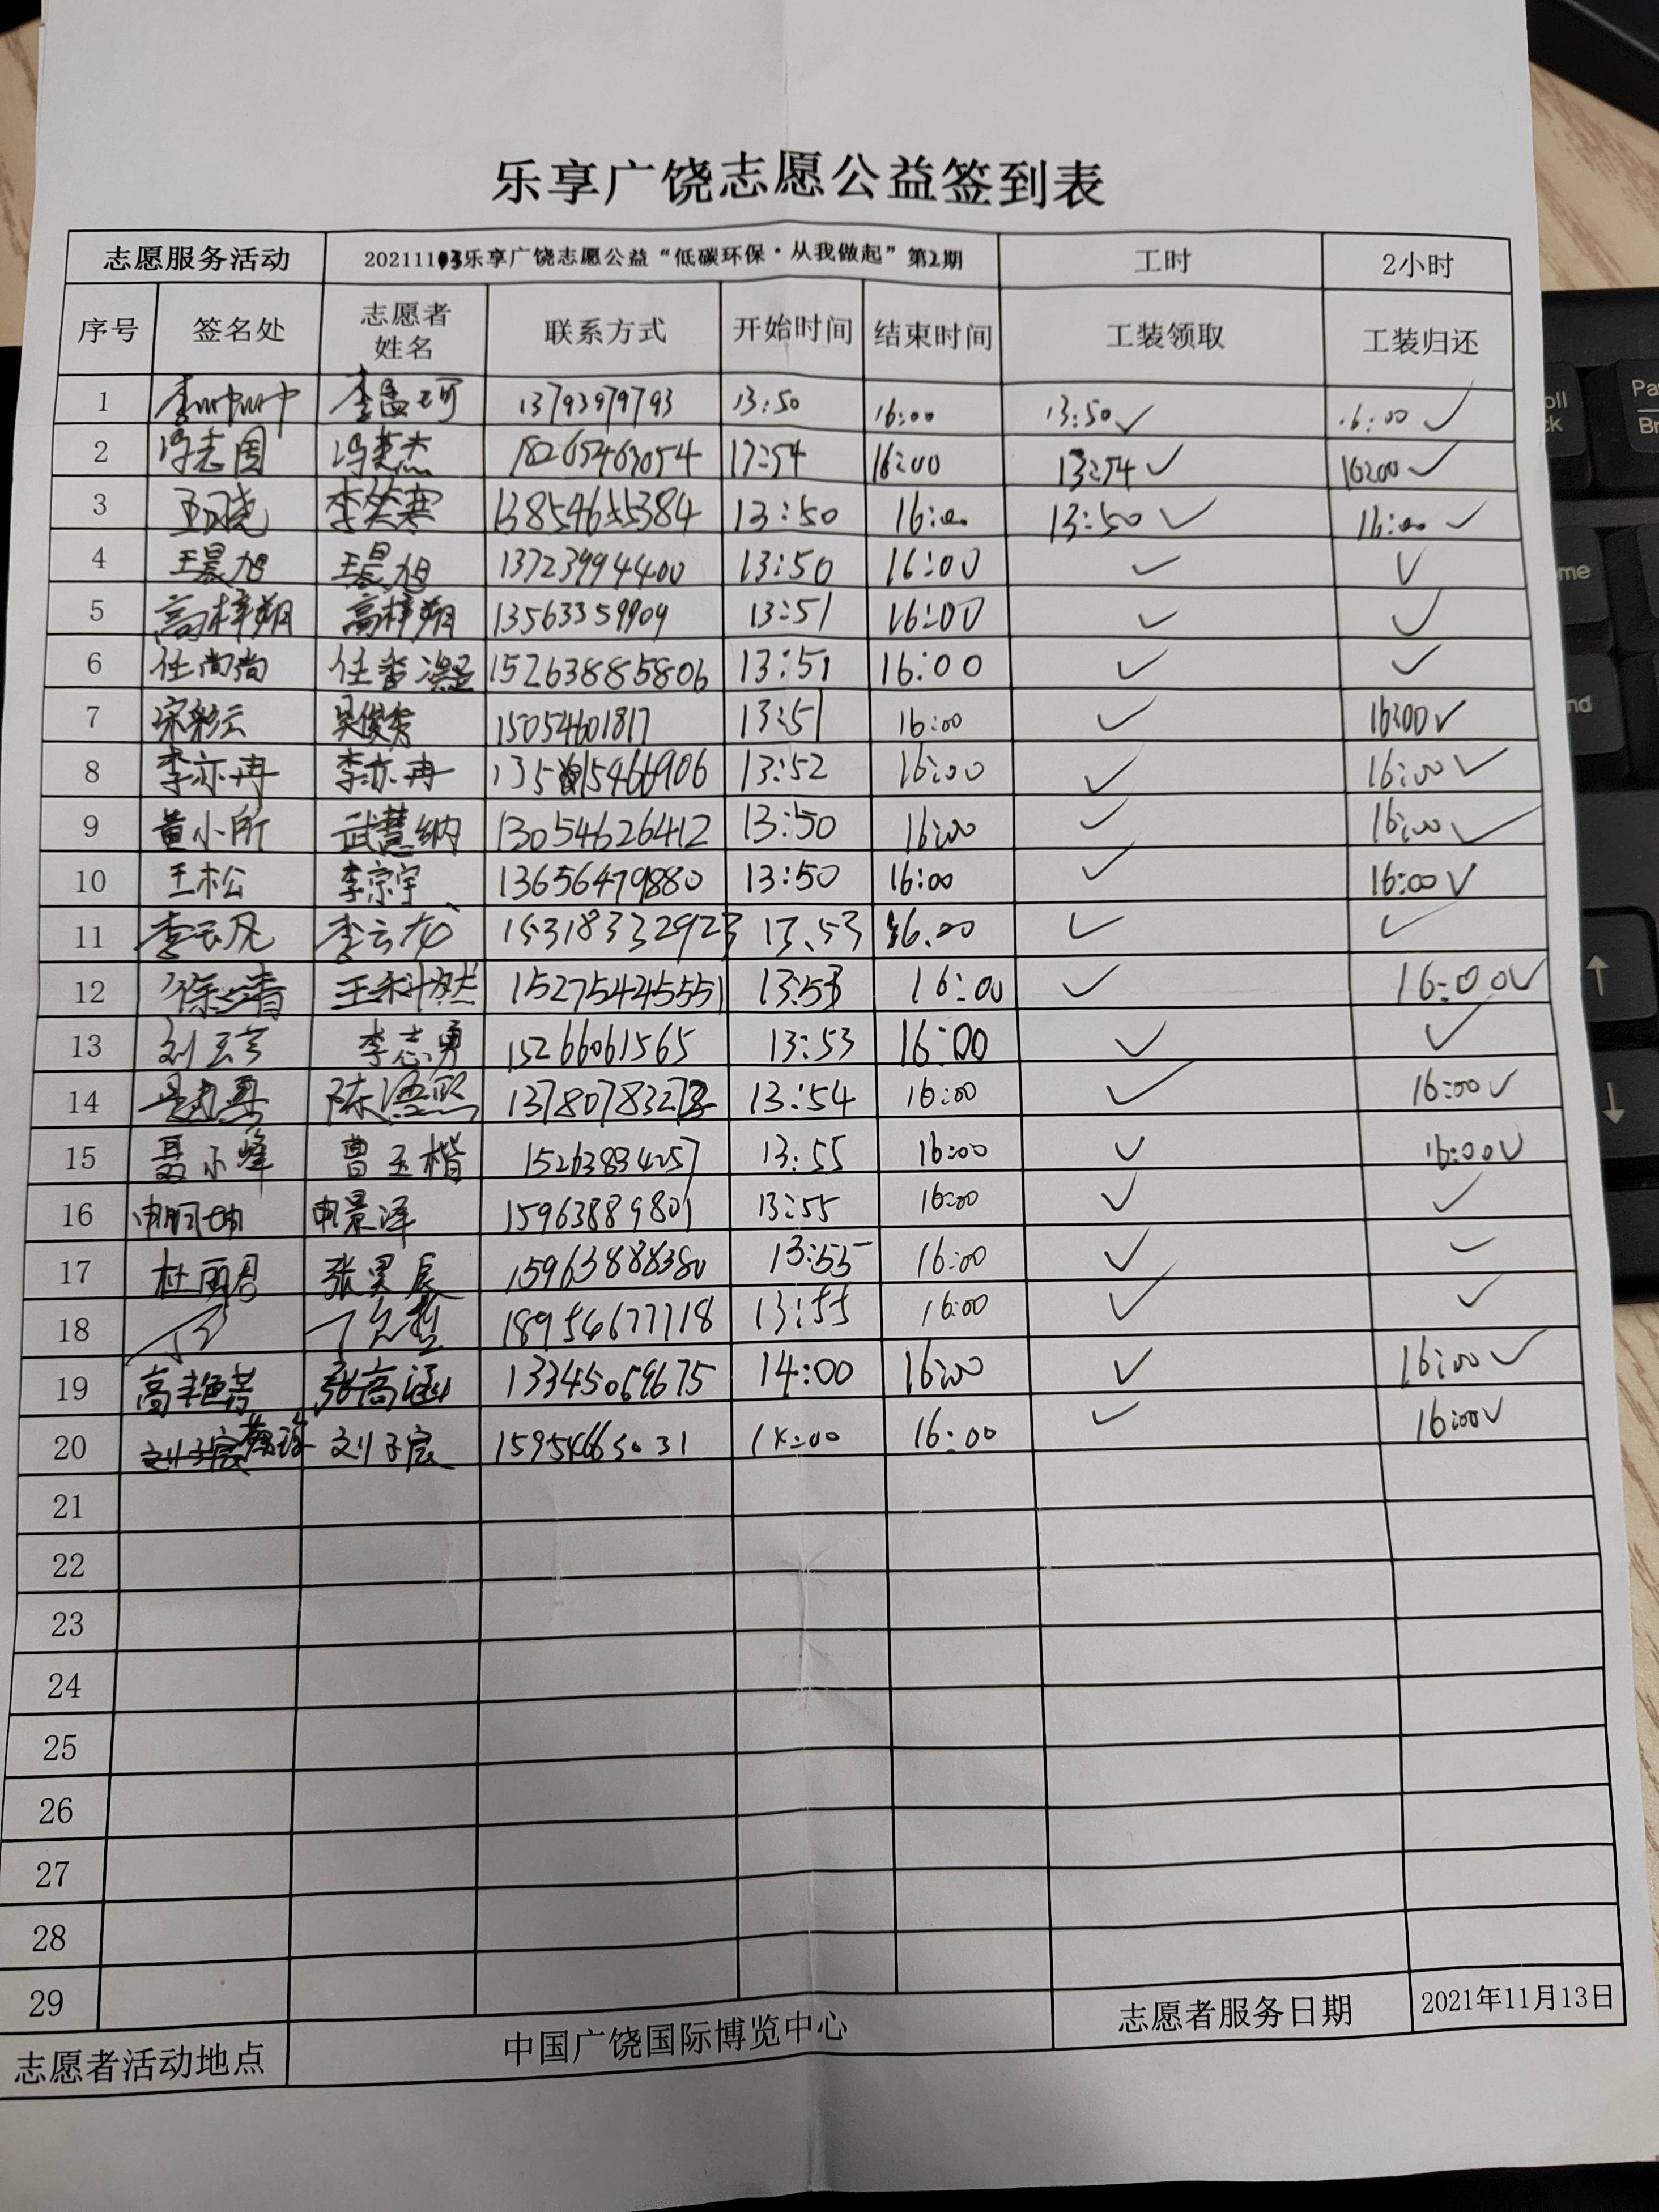 乐享广饶志愿公益签到表
志愿服务活动 20211103乐享广饶志愿公益“低碳环保·从我做起”第2期 工时 2小时
序号 签名处 志愿者姓名 联系方式 开始时间 结束时间 工装领取 工装归还
1 李孟珂 13793979793 13:50 16:00 13:50✓ 16:00✓
2 冯志国 冯英杰 18265463054 13:54 16:00 13:54✓ 16:00✓
3 13:50 16:00 13:50✓ 16:00✓
4 王晨旭 王晨旭 13723994400 13:50 16:00 ✓ ✓
5 高梓翔 高梓翔 13563359909 13:51 16:00 ✓ ✓
6 任尚尚 任香凝 15263885806 13:51 16:00 ✓ ✓
7 宋彩云 吴俊秀 15054601817 13:51 16:00 ✓ 16:00✓
8 李亦冉 李亦冉 13:52 16:00 ✓ 16:00✓
9 董小所 武慧纳 13054626412 13:50 16:00 ✓ 16:00✓
10 王松 李宗宇 13656479880 13:50 16:00 ✓ 16:00✓
11 李云凤 李云龙 15318332923 13.53 16.00 ✓ ✓
12 15275424555 13:53 16:00 ✓ 16:00✓
13 李志勇 15266061565 13:53 16:00 ✓ ✓
14 13:54 16:00 ✓ 16:00✓
15 聂小峰 曹玉楷 13:55 16:00 ✓ 16:00✓
16 申景泽 15963889801 13:55 16:00 ✓ ✓
17 杜丽君 张昊辰 15963888380 13:55 16:00 ✓ ✓
18 18954677718 13:55 16:00 ✓ ✓
19 高艳芳 张高涵 13345069675 14:00 16:00 ✓ 16:00✓
20 刘子宸 15954663031 14:00 16:00 ✓ 16:00✓
21
22
23
24
25
26
27
28
29
志愿者活动地点 中国广饶国际博览中心 志愿者服务日期 2021年11月13日